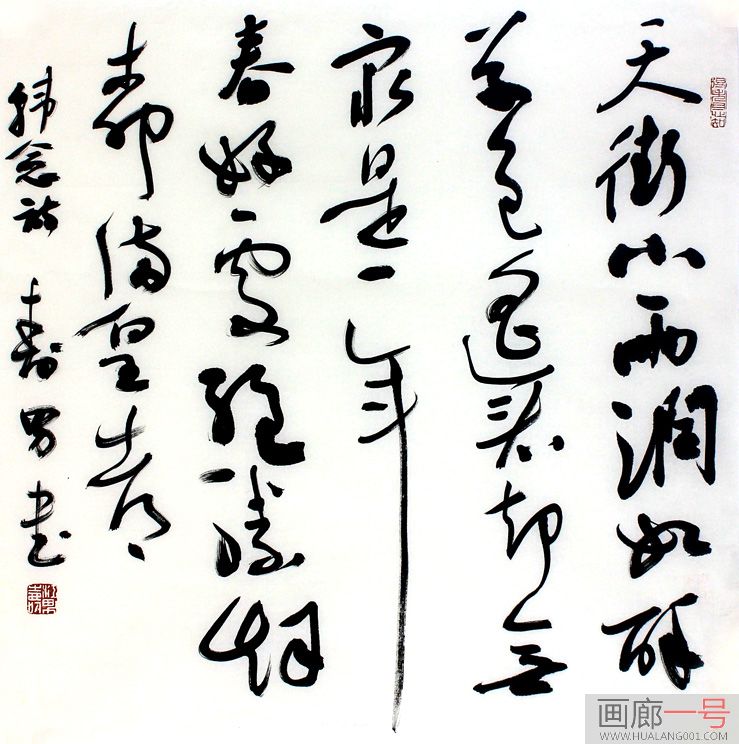 天街小雨润如酥
草色遥看却无
最是一年
春好处绝胜烟
柳满皇都
韩愈诗 寿男书
画廊一号
WWW.HUALANG001.COM